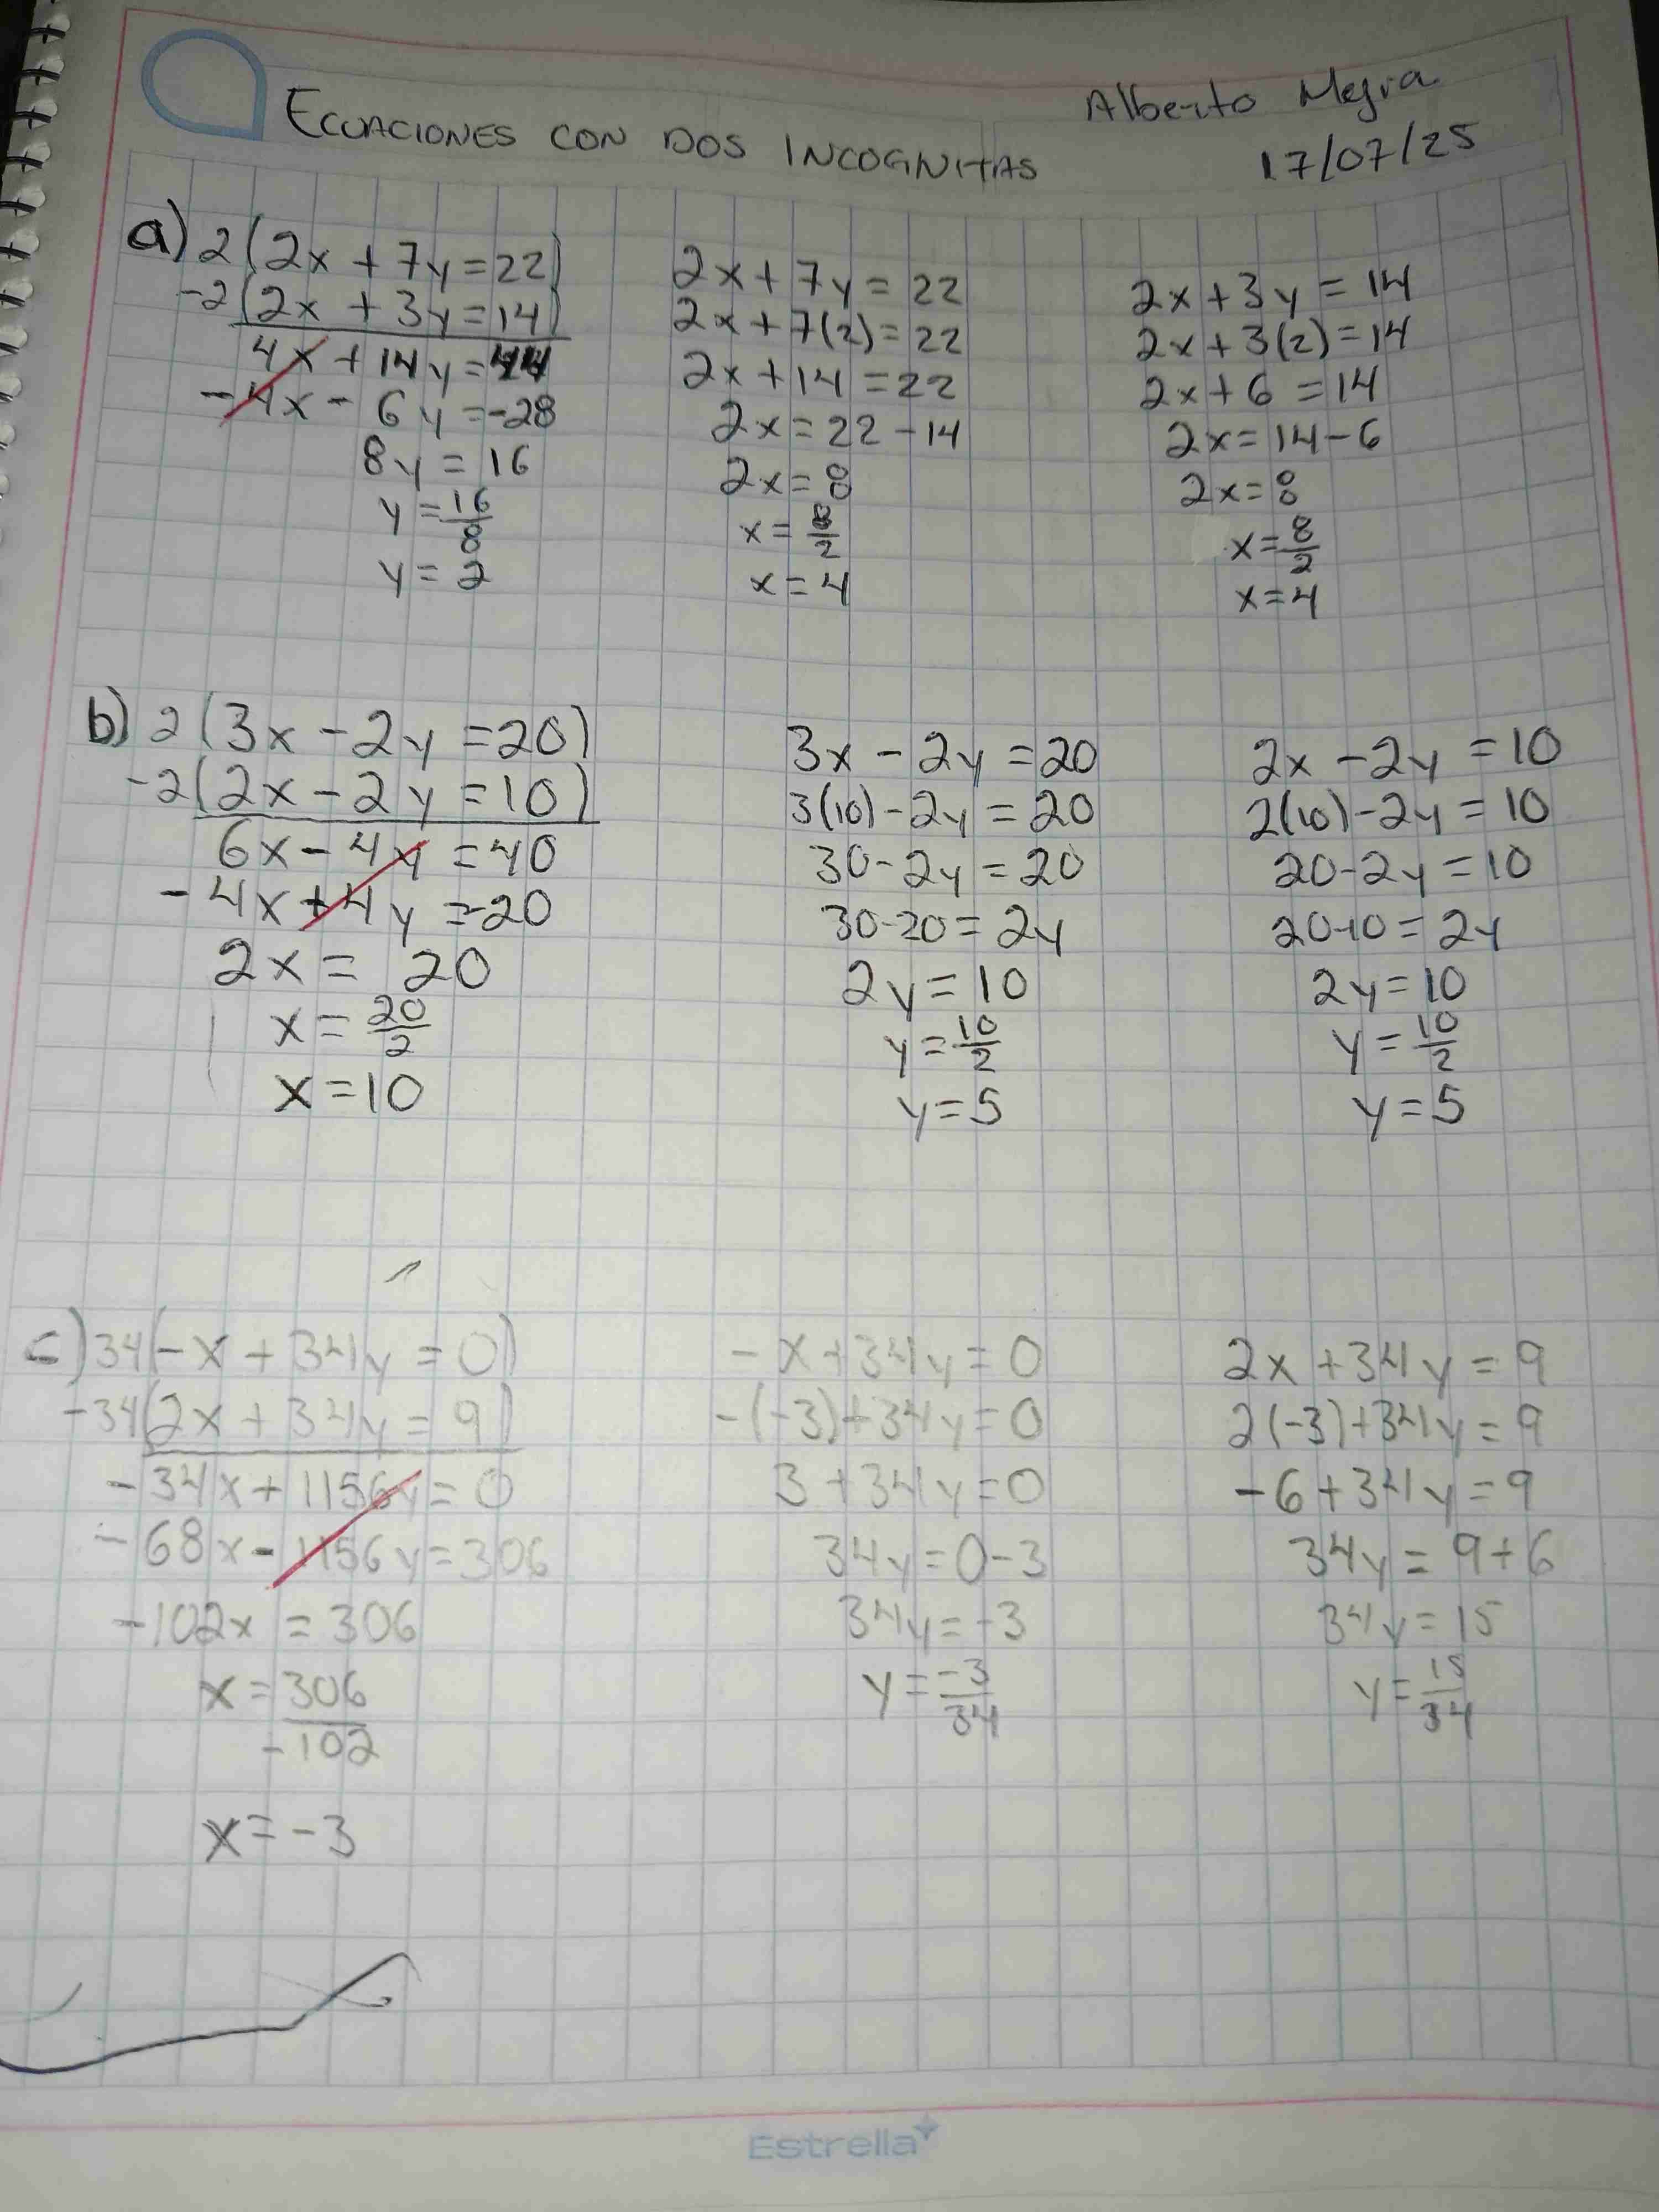 ECUACIONES CON DOS INCOGNITAS
Alberto Mejia
17/07/25
a) 2(2x + 7y = 22)
-2(2x + 3y = 14)
4x + 14y = 44
-4x - 6y = -28
8y = 16
y = 16/8
y = 2
2x + 7y = 22
2x + 7(2) = 22
2x + 14 = 22
2x = 22 - 14
2x = 8
x = 8/2
x = 4
2x + 3y = 14
2x + 3(2) = 14
2x + 6 = 14
2x = 14 - 6
2x = 8
x = 8/2
x = 4
b) 2(3x - 2y = 20)
-2(2x - 2y = 10)
6x - 4y = 40
-4x + 4y = -20
2x = 20
x = 20/2
x = 10
3x - 2y = 20
3(10) - 2y = 20
30 - 2y = 20
30 - 20 = 2y
2y = 10
y = 10/2
y = 5
2x - 2y = 10
2(10) - 2y = 10
20 - 2y = 10
20 - 10 = 2y
2y = 10
y = 10/2
y = 5
c) 34(-x + 34y = 0)
-34(2x + 34y = 9)
-34x + 1156y = 0
-68x - 1156y = 306
-102x = 306
x = 306/-102
x = -3
-x + 34y = 0
-(-3) + 34y = 0
3 + 34y = 0
34y = 0 - 3
34y = -3
y = -3/34
2x + 34y = 9
2(-3) + 34y = 9
-6 + 34y = 9
34y = 9 + 6
34y = 15
y = 15/34
Estrella